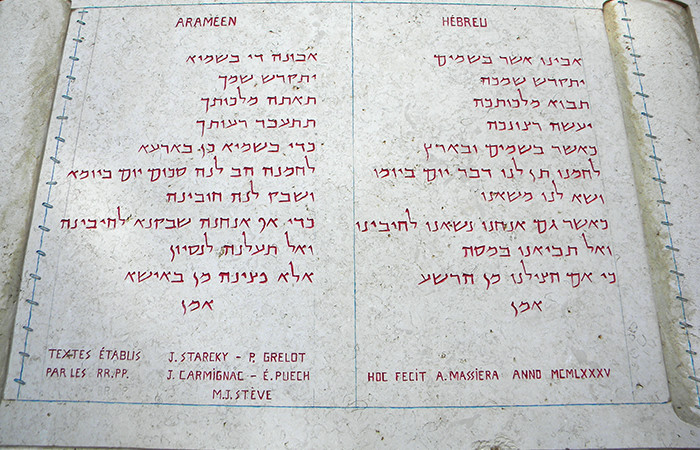 ARAMÉEN
אבונה די בשמיא
יתקדש שמך
תאתה מלכותך
תתעבד רעותך
כדי בשמיא כן בארעא
לחמנה הב לנה סכום יום ביומא
ושבק לנה חובינה
כדי אף אנחנה שבקנא לחיבינה
ואל תעלנה לנסיון
אלא פצינה מן באישא
אמן
TEXTES ÉTABLIS J. STARCKY – P. GRELOT
PAR LES RR.PP. J. CARMIGNAC – É. PUECH
M.J. STÈVE
HÉBREU
אבינו אשר בשמים
יתקדש שמכה
תבוא מלכותכה
יעשה רצונכה
כאשר בשמים ובארץ
לחמנו תן לנו דבר יום ביומו
ושא לנו משאנו
כאשר גם אנחנו נשאנו לחיבינו
ואל תביאנו במסה
כי אם הצילנו מן הרשע
אמן
HOC FECIT A. MASSIERA ANNO MCMLXXXV